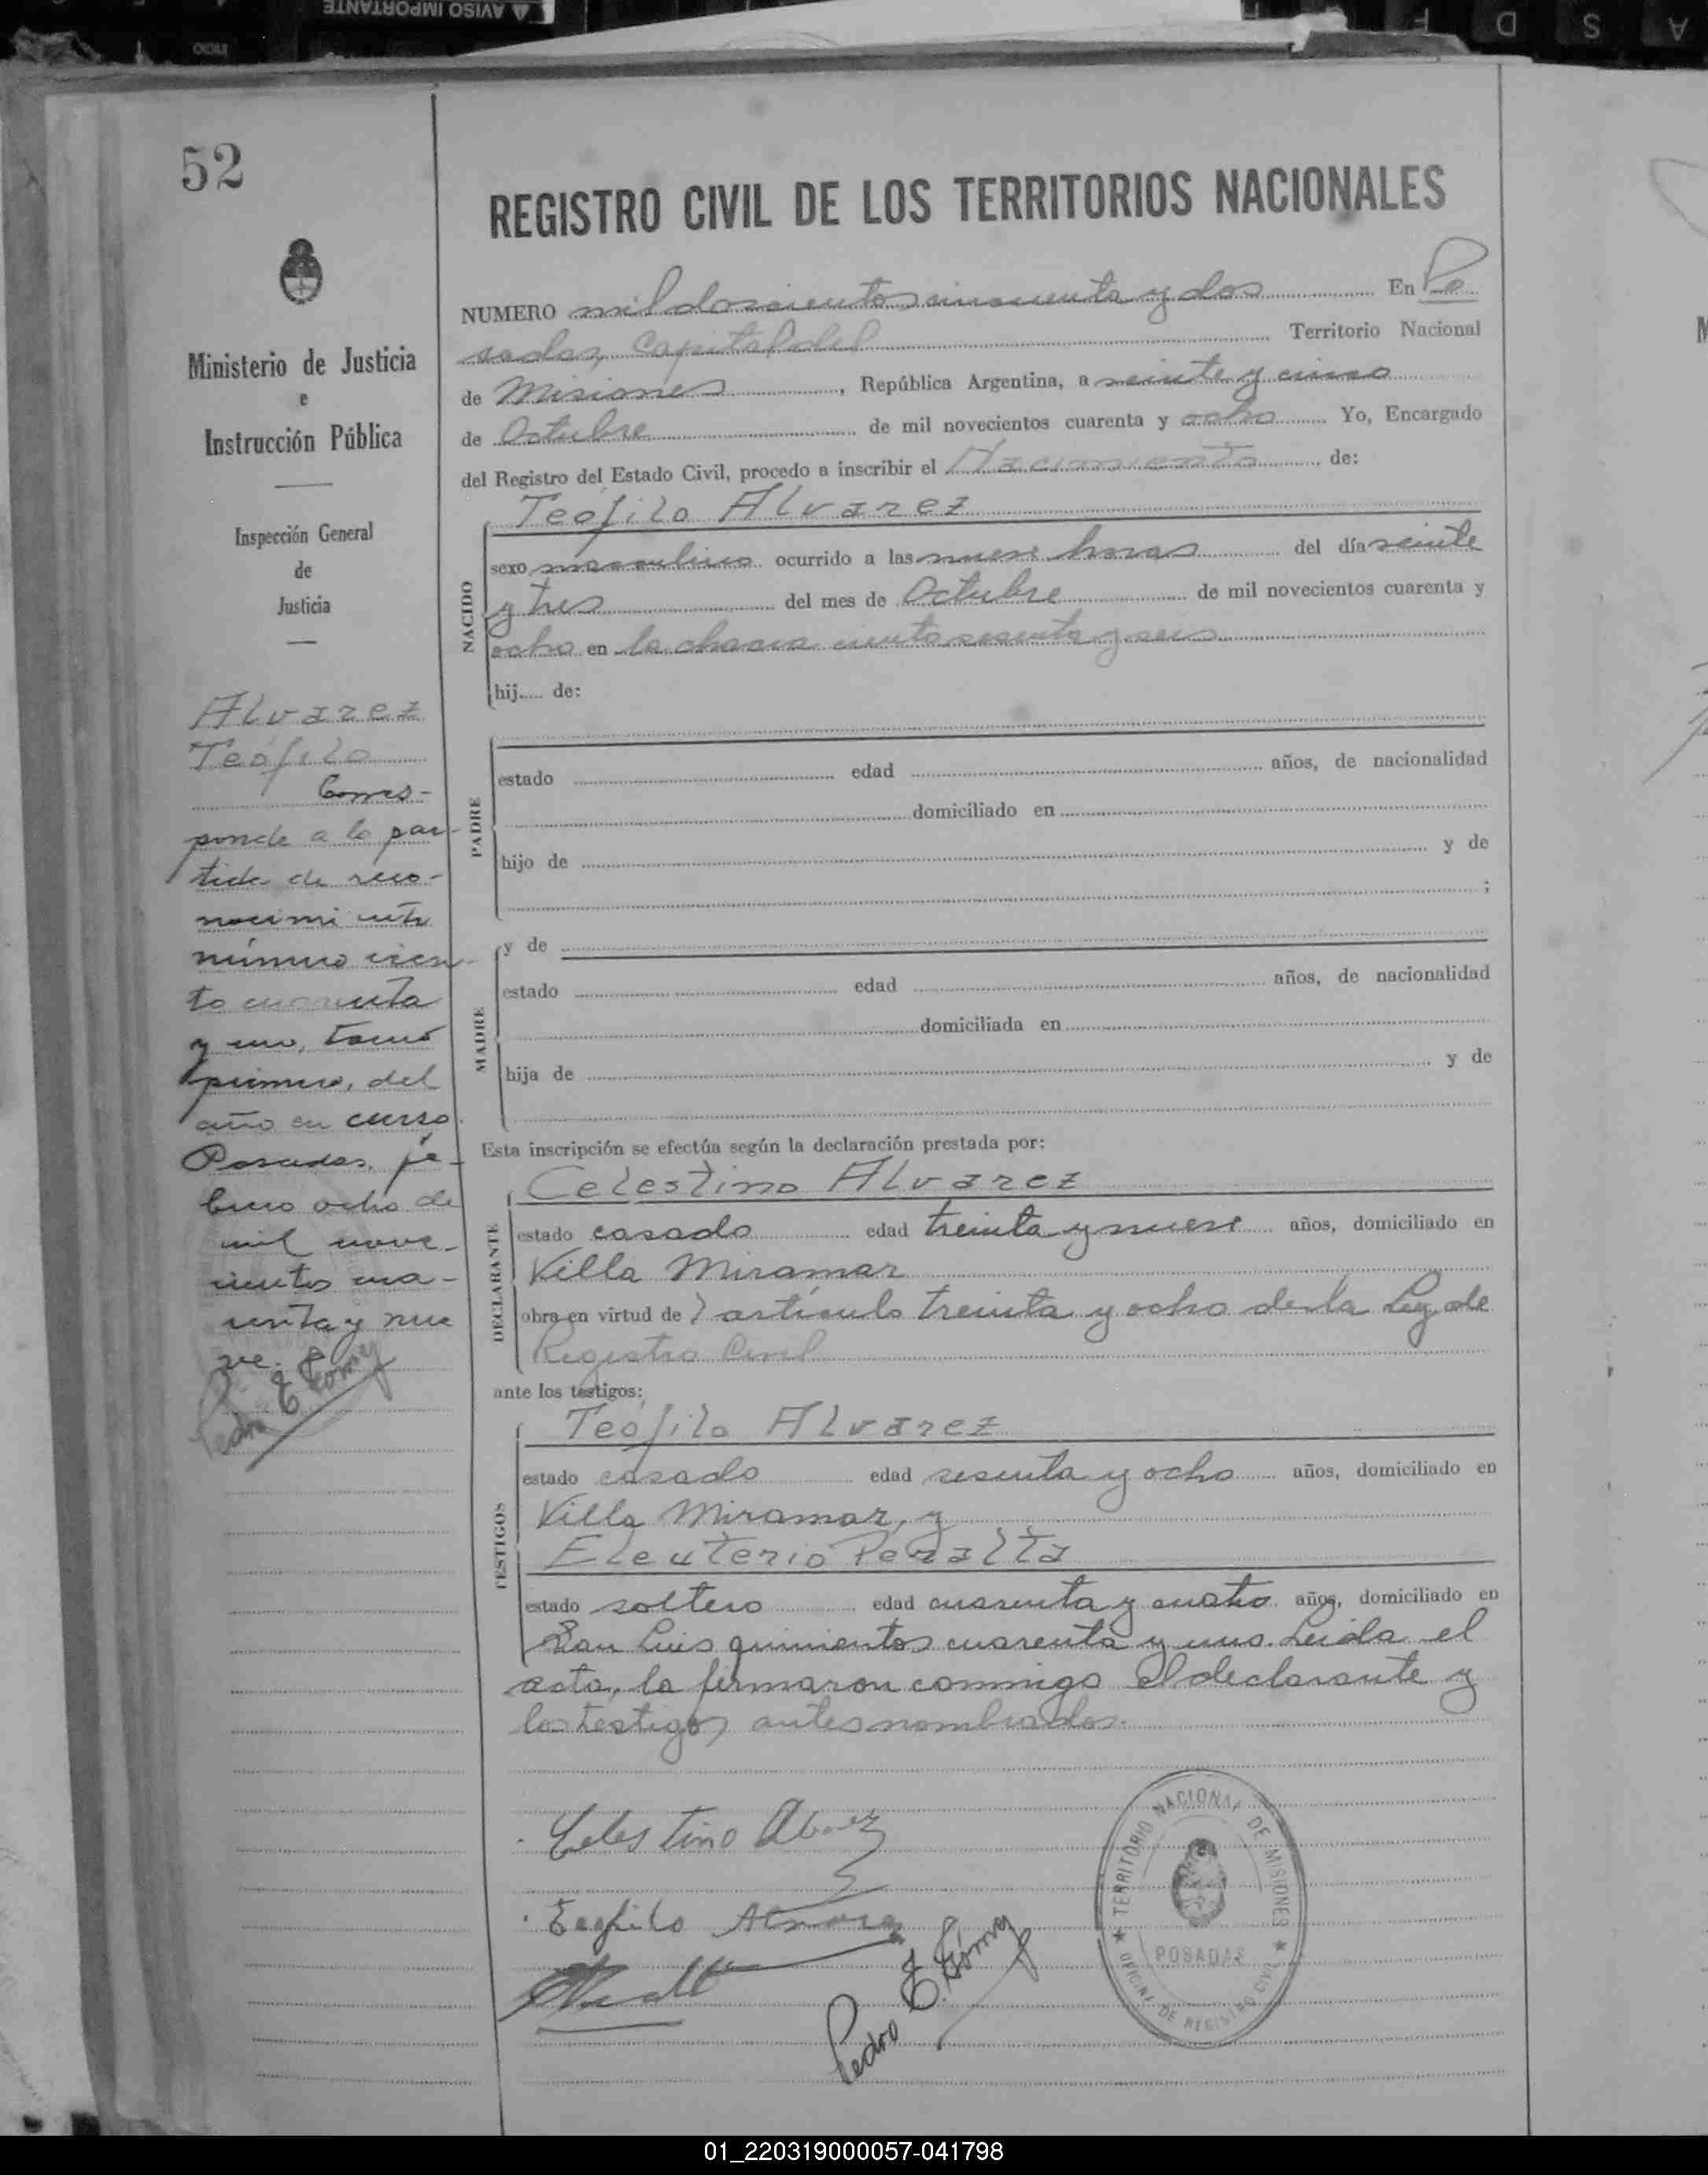 AVISO IMPORTANTE
INICIO
A S D F
52
Ministerio de Justicia
e
Instrucción Pública
Inspección General
de
Justicia
Alvarez
Teófilo
Corres-
ponde a la par-
tida de reco-
nocimiento
número cien-
to cuarenta
y uno, tomo
primero, del
año en curso.
Posadas, fe-
brero ocho de
mil nove-
cientos cua-
renta y nue
ve.
Pedro E. Gómez
REGISTRO CIVIL DE LOS TERRITORIOS NACIONALES
NUMERO mil doscientos cincuenta y dos En Po
sadas, Capital del Territorio Nacional
de Misiones, República Argentina, a veinte y cinco
de Octubre de mil novecientos cuarenta y ocho Yo, Encargado
del Registro del Estado Civil, procedo a inscribir el Nacimiento de:
Teófilo Alvarez
NACIDO
sexo masculino ocurrido a las nueve horas del día veinte
y tres del mes de Octubre de mil novecientos cuarenta y
ocho en la chacra ciento sesenta y seis
hij..... de:
PADRE
estado edad años, de nacionalidad
domiciliado en
hijo de y de
;
MADRE
y de
estado edad años, de nacionalidad
domiciliada en
hija de y de
Esta inscripción se efectúa según la declaración prestada por:
Celestino Alvarez
DECLARANTE
estado casado edad treinta y nueve años, domiciliado en
Villa Miramar
obra en virtud del artículo treinta y ocho de la Ley de
Registro Civil
ante los testigos:
Teófilo Alvarez
TESTIGOS
estado casado edad sesenta y ocho años, domiciliado en
Villa Miramar, y
Eleuterio Peralta
estado soltero edad cuarenta y cuatro años, domiciliado en
San Luis quinientos cuarenta y uno. Leida el
acta, la firmaron conmigo el declarante y
los testigos antes nombrados.
Celestino Alvarez
Teofilo Alvarez
Pedro E. Gómez
TERRITORIO NACIONAL DE MISIONES
POSADAS
OFICINA DE REGISTRO CIVIL
01_220319000057-041798